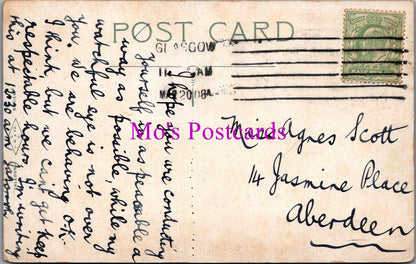 POST CARD
GLASGOW
AM
MA 20 08
I hope you are conducting
yourself in as peaceable a
way as possible, while my
watchful eye is not over
you. We are behaving O.K.
I think, but we can't keep
respectable hours. I'm writing
this at 12.30 a.m.
Miss Agnes Scott
14 Jasmine Place
Aberdeen
Mo's Postcards